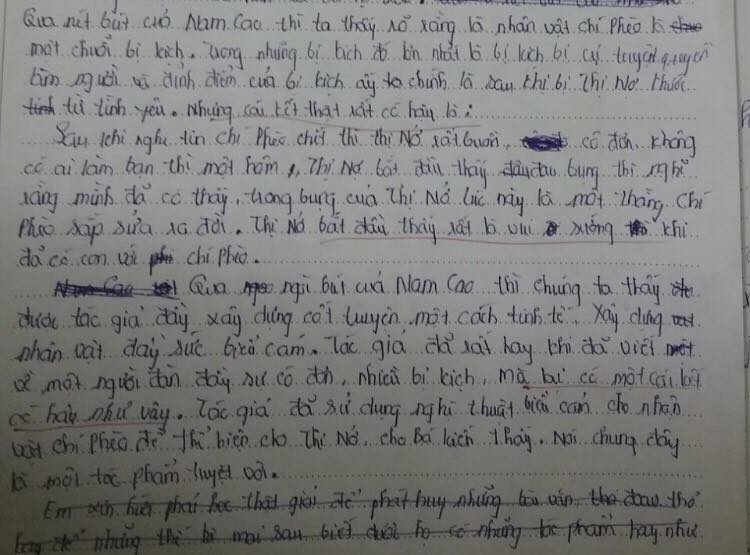 Qua nét bút của Nam Cao thì ta thấy rõ ràng là nhân vật chí Phèo là
một chuỗi bi kịch. Trong những bi kịch đó lớn nhất là bi kịch bị cự tuyệt quyền
làm người và đỉnh điểm của bi kịch ấy chính là sau khi bị Thị Nở khước
từ tình yêu. Nhưng cái kết thật rất có hậu là:
Sau khi nghe tin chí Phèo chết thì thị Nở rất buồn, cô đơn, không
có ai làm bạn thì một hôm, Thị Nở bắt đầu thấy đau bụng thì nghĩ
rằng mình đã có thây, trong bụng của Thị Nở lúc này là một thằng Chí
Phèo sắp sửa ra đời. Thị Nở bắt đầu thấy rất là vui sướng khi
đã có con với chí Phèo.
Qua ngòi bút của Nam Cao thì chúng ta thấy
được tác giả đây xây dựng cốt truyện một cách tinh tế. Xây dựng
nhân vật đầy sức biểu cảm. Tác giả đã rất hay khi đã viết
về một người đàn đầy sự cô đơn, nhiều bi kịch, mà lại có một cái kết
có hậu như vậy. Tác giả đã sử dụng nghệ thuật biểu cảm cho nhân
vật chí Phèo để thể hiện cho Thị Nở, cho Bá kiến thấy. Nói chung đây
là một tác phẩm tuyệt vời.
Em phải học thật giỏi để phát huy những bài văn thơ
những thế hệ mai sau biết được họ có những tác phẩm hay như